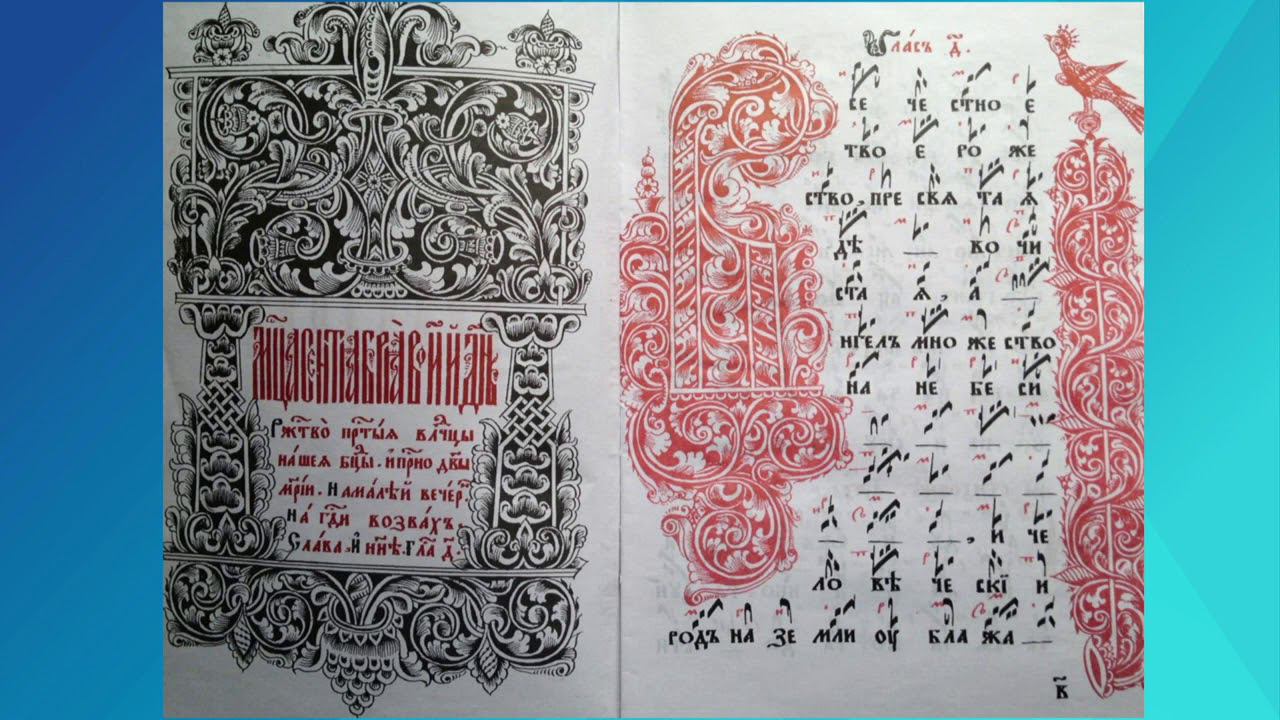 Мц҃а сентѧбрѧ̀ во и҃ й дн҃ь
Ржⷭ҇тво̀ прⷭ҇тыѧ влⷣчцы
нашеѧ бц҃ы. и҆ прⷭ҇но дв҃ы
мр҃іи. на малѣй вечерⷩ҇
на гдⷭ҇и возвахъ.
Слава, и҆ нн҃ѣ. гла д҃.
гласъ д҃.
се че стно е
тво е ро же
ство, пре свѧ та ѧ
дѣ во чи
ста ѧ, а
нгелъ мно же ство
на не бе си
, и че
ло вѣ че скїи
родъ на зе мли оу бла жа
в҃